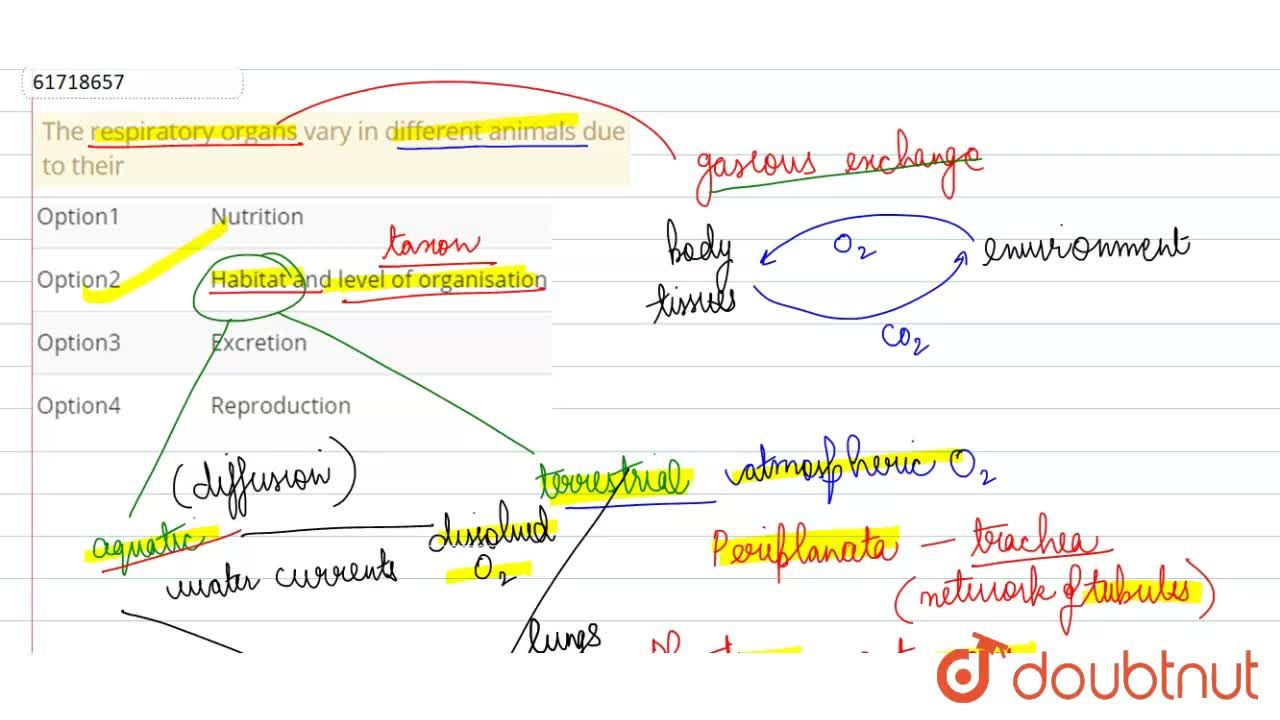 61718657
The respiratory organs vary in different animals due
to their
gaseous exchange
Option1 Nutrition
taxon
body
tissues
O2
environment
CO2
Option2 Habitat and level of organisation
Option3 Excretion
Option4 Reproduction
(diffusion)
terrestrial
atmospheric O2
aquatic
dissolved
O2
water currents
Periplanata — trachea
(network of tubules)
lungs
doubtnut